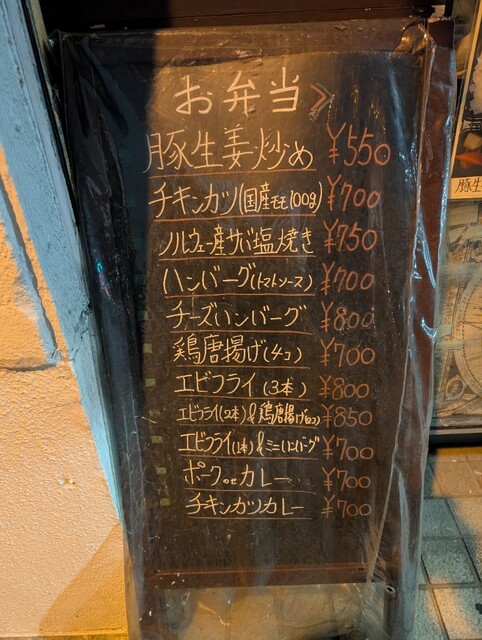 お弁当
豚生姜炒め ¥550
チキンカツ(国産モモ100g) ¥700
ノルウェー産サバ塩焼き ¥750
ハンバーグ(トマトソース) ¥700
チーズハンバーグ ¥800
鶏唐揚げ(4コ) ¥700
エビフライ(3本) ¥800
エビフライ(2本)&鶏唐揚げ(2コ) ¥850
エビフライ(1本)&ミニハンバーグ ¥700
ポークのせカレー ¥700
チキンカツカレー ¥700
豚生